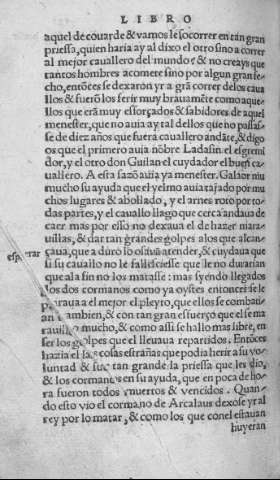 LIBRO
aquel de couarde & vamos le socorrer en tan gran
priessa, quien haria ay al dixo el otro sino a correr
al mejor cauallero del mundo & no creays que
tantos hombres acomete sino por algun gran fe-
cho, entōces se dexaron yr a grā correr de los caua
llos & fuerō los ferir muy brauamēte como aque-
llos que erā muy esforçados & sabidores de aquel
menester, que no auia ay tal dellos que no passas-
se de diez años que fuera cauallero andāte, & digo
os que el primero auia nōbre Ladasin el esgremi
dor, y el otro don Guilan el cuydador el buen ca-
uallero. A esta sazō auia ya menester Galaor mu
mucho su ayuda que el yelmo auia tajado por mu
chos lugares & abollado, y el arnes roto por to-
das partes, y el cauallo llagado que cerca andaua de
caer mas por esso no dexaua el de hazer mara-
uillas, & dar tan grandes golpes a los que alcan-
esperar çaua, que a duro lo osauā atender, & cuydaua que
si su cauallo no le fallesciesse que le no durarian
que ala fin no los matasse: mas syendo llegados
los dos cormanos como ya oystes entonces se le
paraua a el mejor el pleyto, que ellos se combatian
tambien, & con tan gran esfuerço que el se ma
rauillo mucho, & como assi se hallo mas libre, en
ser los golpes que el lleuaua repartidos. Entōces
hazia el las cosas estrañas que podia herir a su vo-
luntad & fue tan grande la priessa que les dio,
& los cormanos en su ayuda, que en poca de ho-
ra fueron todos muertos & vencidos. Quan-
do esto vio el cormano de Arcalaus dexose yr al
rey por lo matar, & como los que con el estauan
huyeran